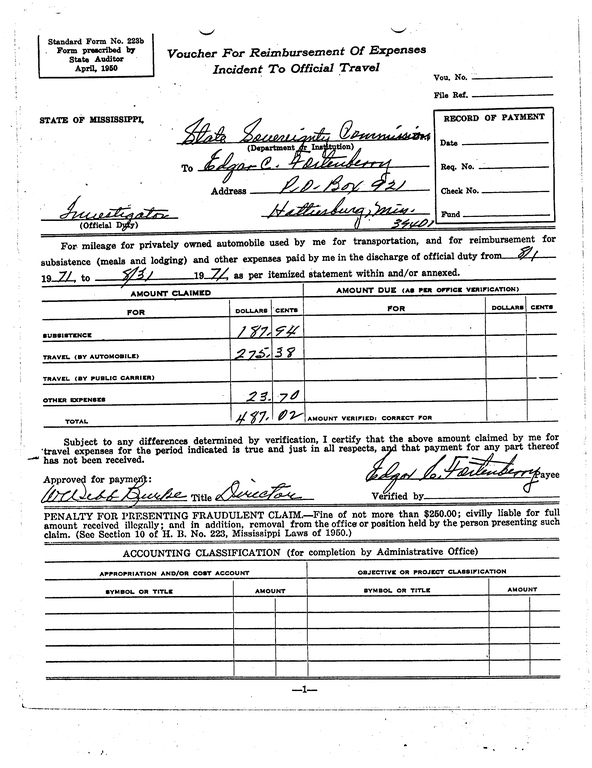 Standard Form No. 223b
Form prescribed by
State Auditor
April, 1950
Voucher For Reimbursement Of Expenses
Incident To Official Travel
Vou. No.
File Ref.
STATE OF MISSISSIPPI,
State Sovereignty Commission
(Department or Institution)
To Edgar C. Fortenberry
Address P.O. Box 921
Investigator
(Official Duty)
Hattiesburg, Miss.
39401
RECORD OF PAYMENT
Date
Req. No.
Check No.
Fund
For mileage for privately owned automobile used by me for transportation, and for reimbursement for
subsistence (meals and lodging) and other expenses paid by me in the discharge of official duty from 8/1
1971, to 8/31 1971, as per itemized statement within and/or annexed.
AMOUNT CLAIMED AMOUNT DUE (AS PER OFFICE VERIFICATION)
FOR DOLLARS CENTS FOR DOLLARS CENTS
SUBSISTENCE 187.94
TRAVEL (BY AUTOMOBILE) 275.38
TRAVEL (BY PUBLIC CARRIER)
OTHER EXPENSES 23.70
TOTAL 487.02 AMOUNT VERIFIED: CORRECT FOR
Subject to any differences determined by verification, I certify that the above amount claimed by me for
travel expenses for the period indicated is true and just in all respects, and that payment for any part thereof
has not been received.
Edgar C. Fortenberry Payee
Approved for payment:
W. Webb Burke Title Director Verified by
PENALTY FOR PRESENTING FRAUDULENT CLAIM.—Fine of not more than $250.00; civilly liable for full
amount received illegally; and in addition, removal from the office or position held by the person presenting such
claim. (See Section 10 of H. B. No. 223, Mississippi Laws of 1950.)
ACCOUNTING CLASSIFICATION (for completion by Administrative Office)
APPROPRIATION AND/OR COST ACCOUNT OBJECTIVE OR PROJECT CLASSIFICATION
SYMBOL OR TITLE AMOUNT SYMBOL OR TITLE AMOUNT
—1—